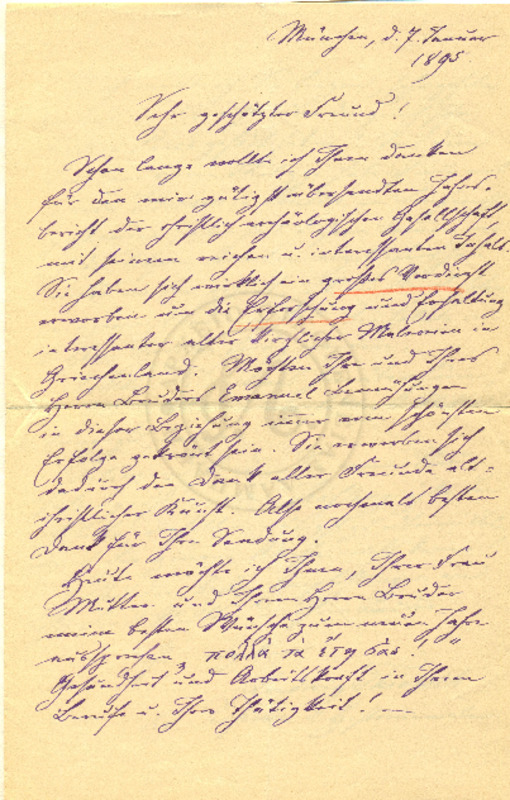 München, d. 7. Januar
1895
Sehr geschätzter Freund!
Schon lange wollte ich Ihnen danken
für den mir gütigst übersendten Jahres-
bericht der christlich archäologischen Gesellschaft,
mit seinem reichen u. interessanten Inhalt.
Sie haben sich wirklich ein großes Verdienst
erworben um die Erforschung und Erhaltung
interessanter alter kirchlicher Malereien in
Griechenland. Möchten Ihre und Ihres
Herrn Bruders Emanuel Bemühungen
in dieser Beziehung immer vom schönsten
Erfolge gekrönt sein. Sie erwerben sich
dadurch den Dank aller Freunde alt-
christlicher Kunst. Also nochmals besten
Dank für Ihre Sendung.
Heute möchte ich Ihnen, Ihrer Frau
Mutter und Ihrem Herrn Bruder
meine besten Wünsche zum neuen Jahre
aussprechen πολλὰ τὰ ἔτη σας!
Gesundheit und Arbeitskraft in Ihrem
Berufe u. Ihrer Thätigkeit!